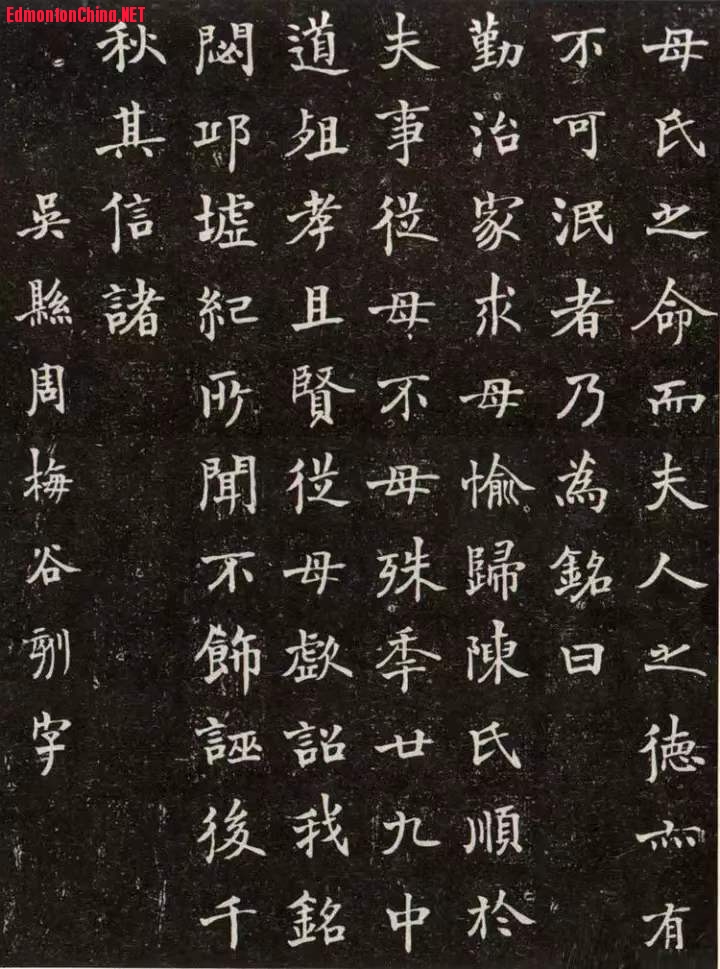 EdmontonChina.NET
母氏之命而夫人之德亦有
不可泯者乃為銘曰
勤治家求母愉歸陳氏順於
夫事從母不母殊秊廿九中
道殂孝且賢從母歔詔我銘
閟邛墟紀所聞不飾誣後千
秋其信諸
吳縣周梅谷刻字